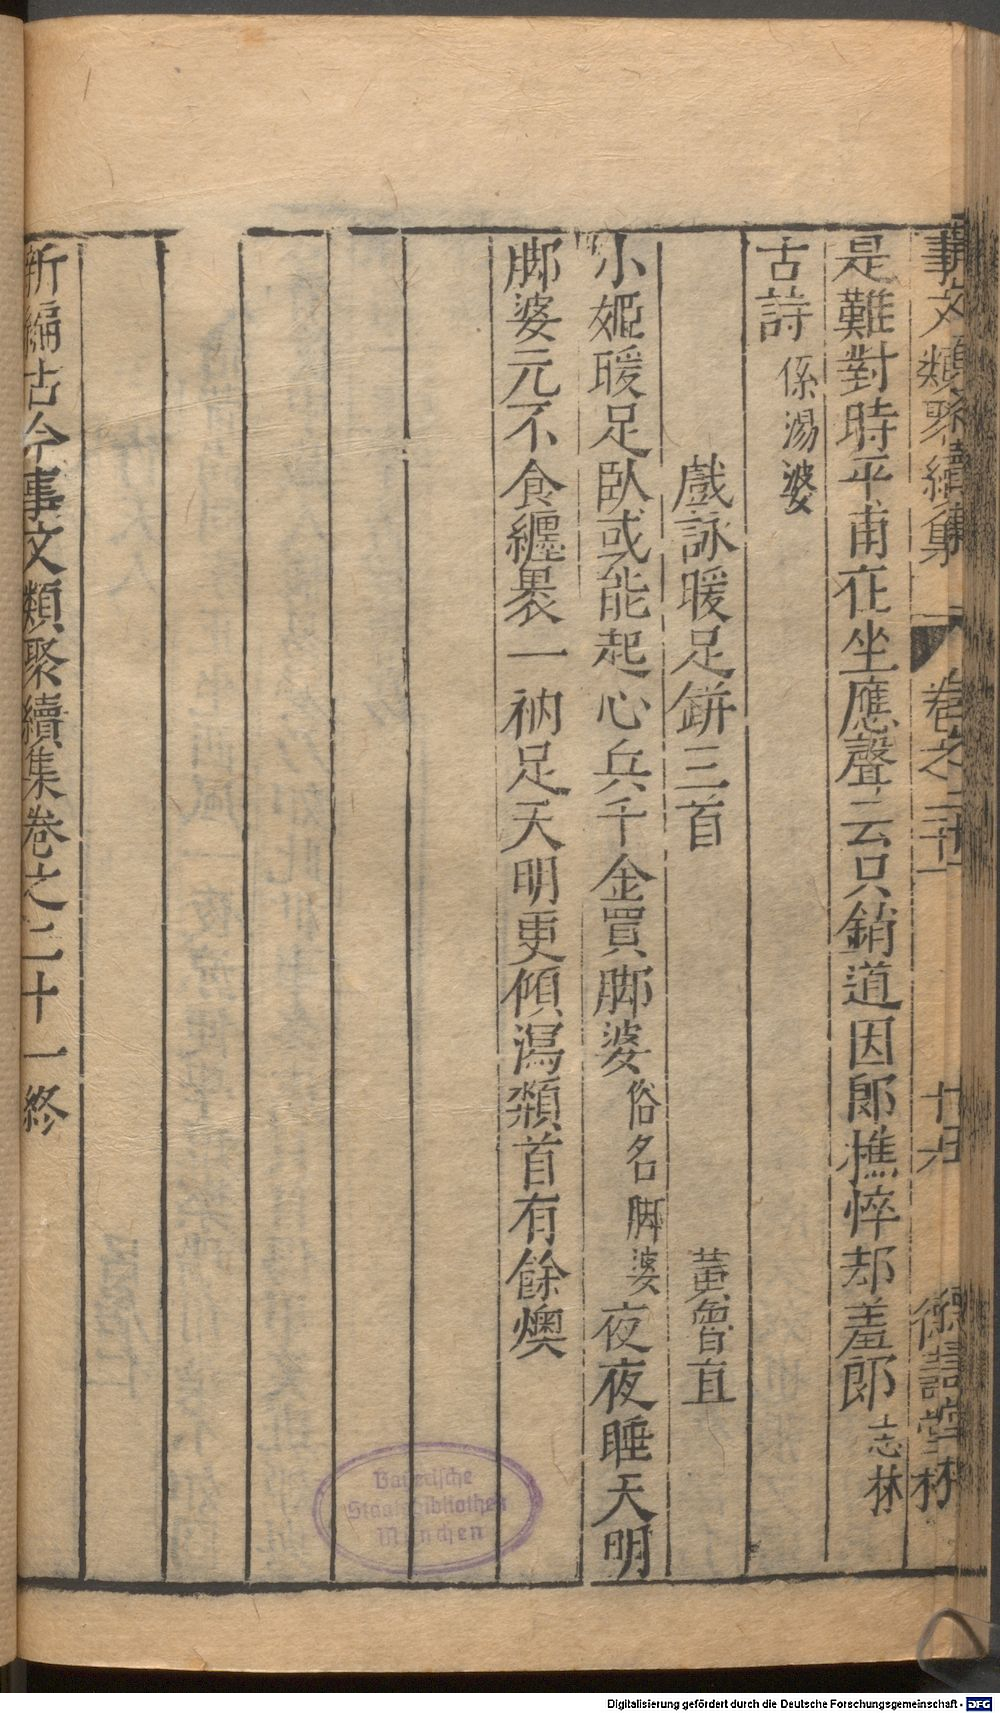 事文類聚續集 卷之二十一 十六 德壽堂梓
是難對時平甫在坐應聲云只銷道因郎憔悴却羞郎 志林
古詩 係湯婆
戲詠暖足缾三首 黃魯直
小姬暖足臥或能起心兵千金買脚婆 俗名脚婆 夜夜睡天明
脚婆元不食纏裹一衲足天明更傾瀉頮首有餘燠
新編古今事文類聚續集卷之二十一終
Bayerische
Staatsbibliothek
München
Digitalisierung gefördert durch die Deutsche Forschungsgemeinschaft - DFG